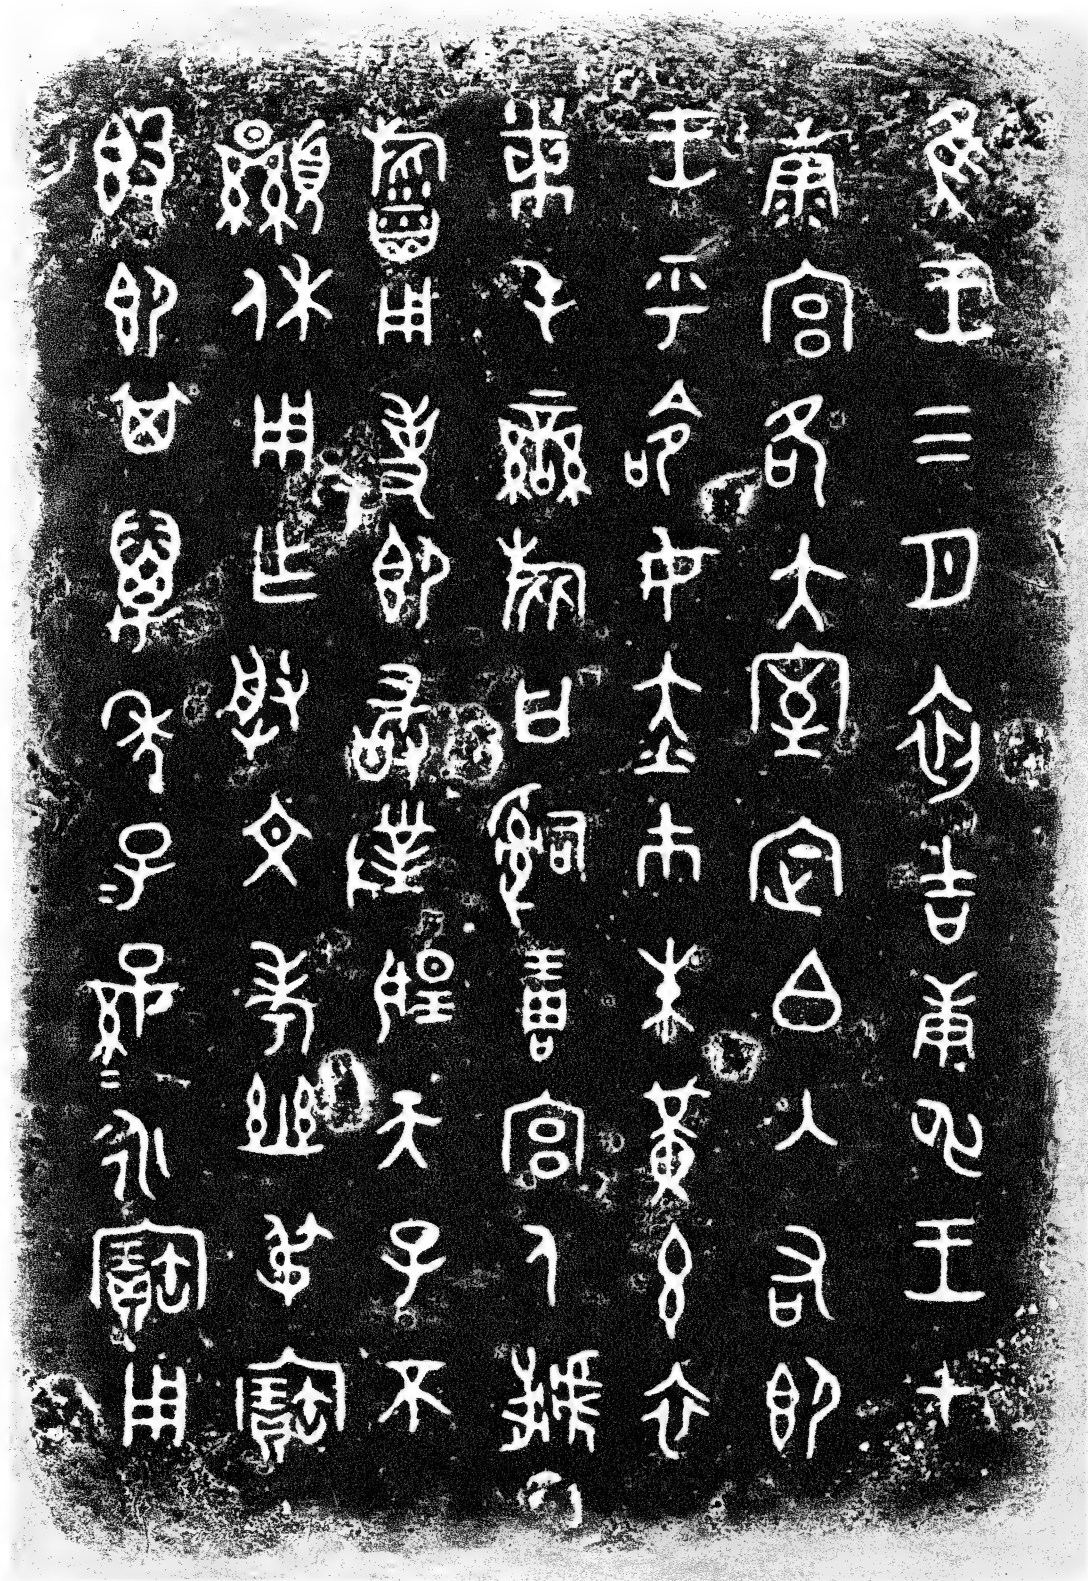 隹王三月初吉庚申王才
康宮各大室定白入右即
王乎命女赤巿朱黃玄衣
黹屯䜌旂曰𤔲琱宮人虢
旃用事即敢對揚天子不
顯休用乍朕文考幽弔寶
簋即其萬年子=孫=永寶用